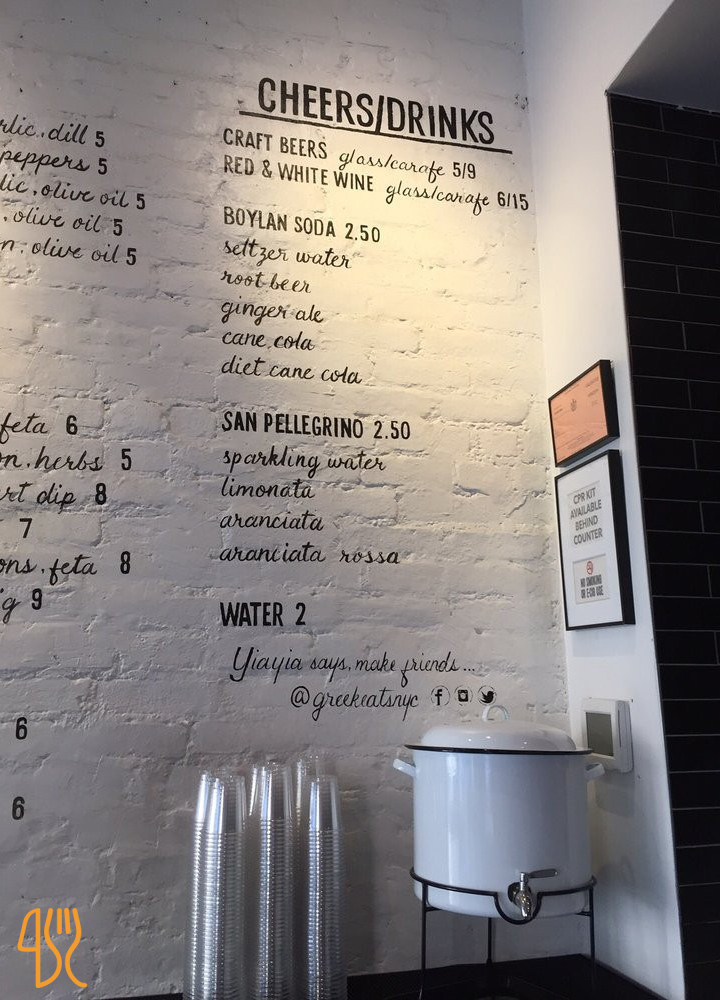 rlic, dill 5
peppers 5
lic, olive oil 5
, olive oil 5
n, olive oil 5
feta 6
on, herbs 5
rt dip 8
7
ons, feta 8
g 9
6
6
CHEERS/DRINKS
CRAFT BEERS glass/carafe 5/9
RED & WHITE WINE glass/carafe 6/15
BOYLAN SODA 2.50
seltzer water
root beer
ginger ale
cane cola
diet cane cola
SAN PELLEGRINO 2.50
sparkling water
limonata
aranciata
aranciata rossa
WATER 2
Yiayia says, make friends...
@greekeatsnyc
CPR KIT
AVAILABLE
BEHIND
COUNTER
NO SMOKING
OR E-CIG USE